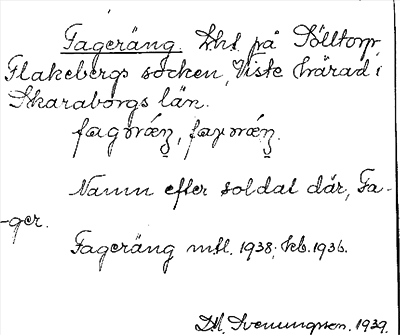 Fageräng. Lht på Sölltorp,
Flakebergs socken, Viste härad i
Skaraborgs län.
Namn efter soldat där, Fa-
-ger.
Fageräng mtl. 1938; kb. 1936.
D.M. Svenungson. 1939.